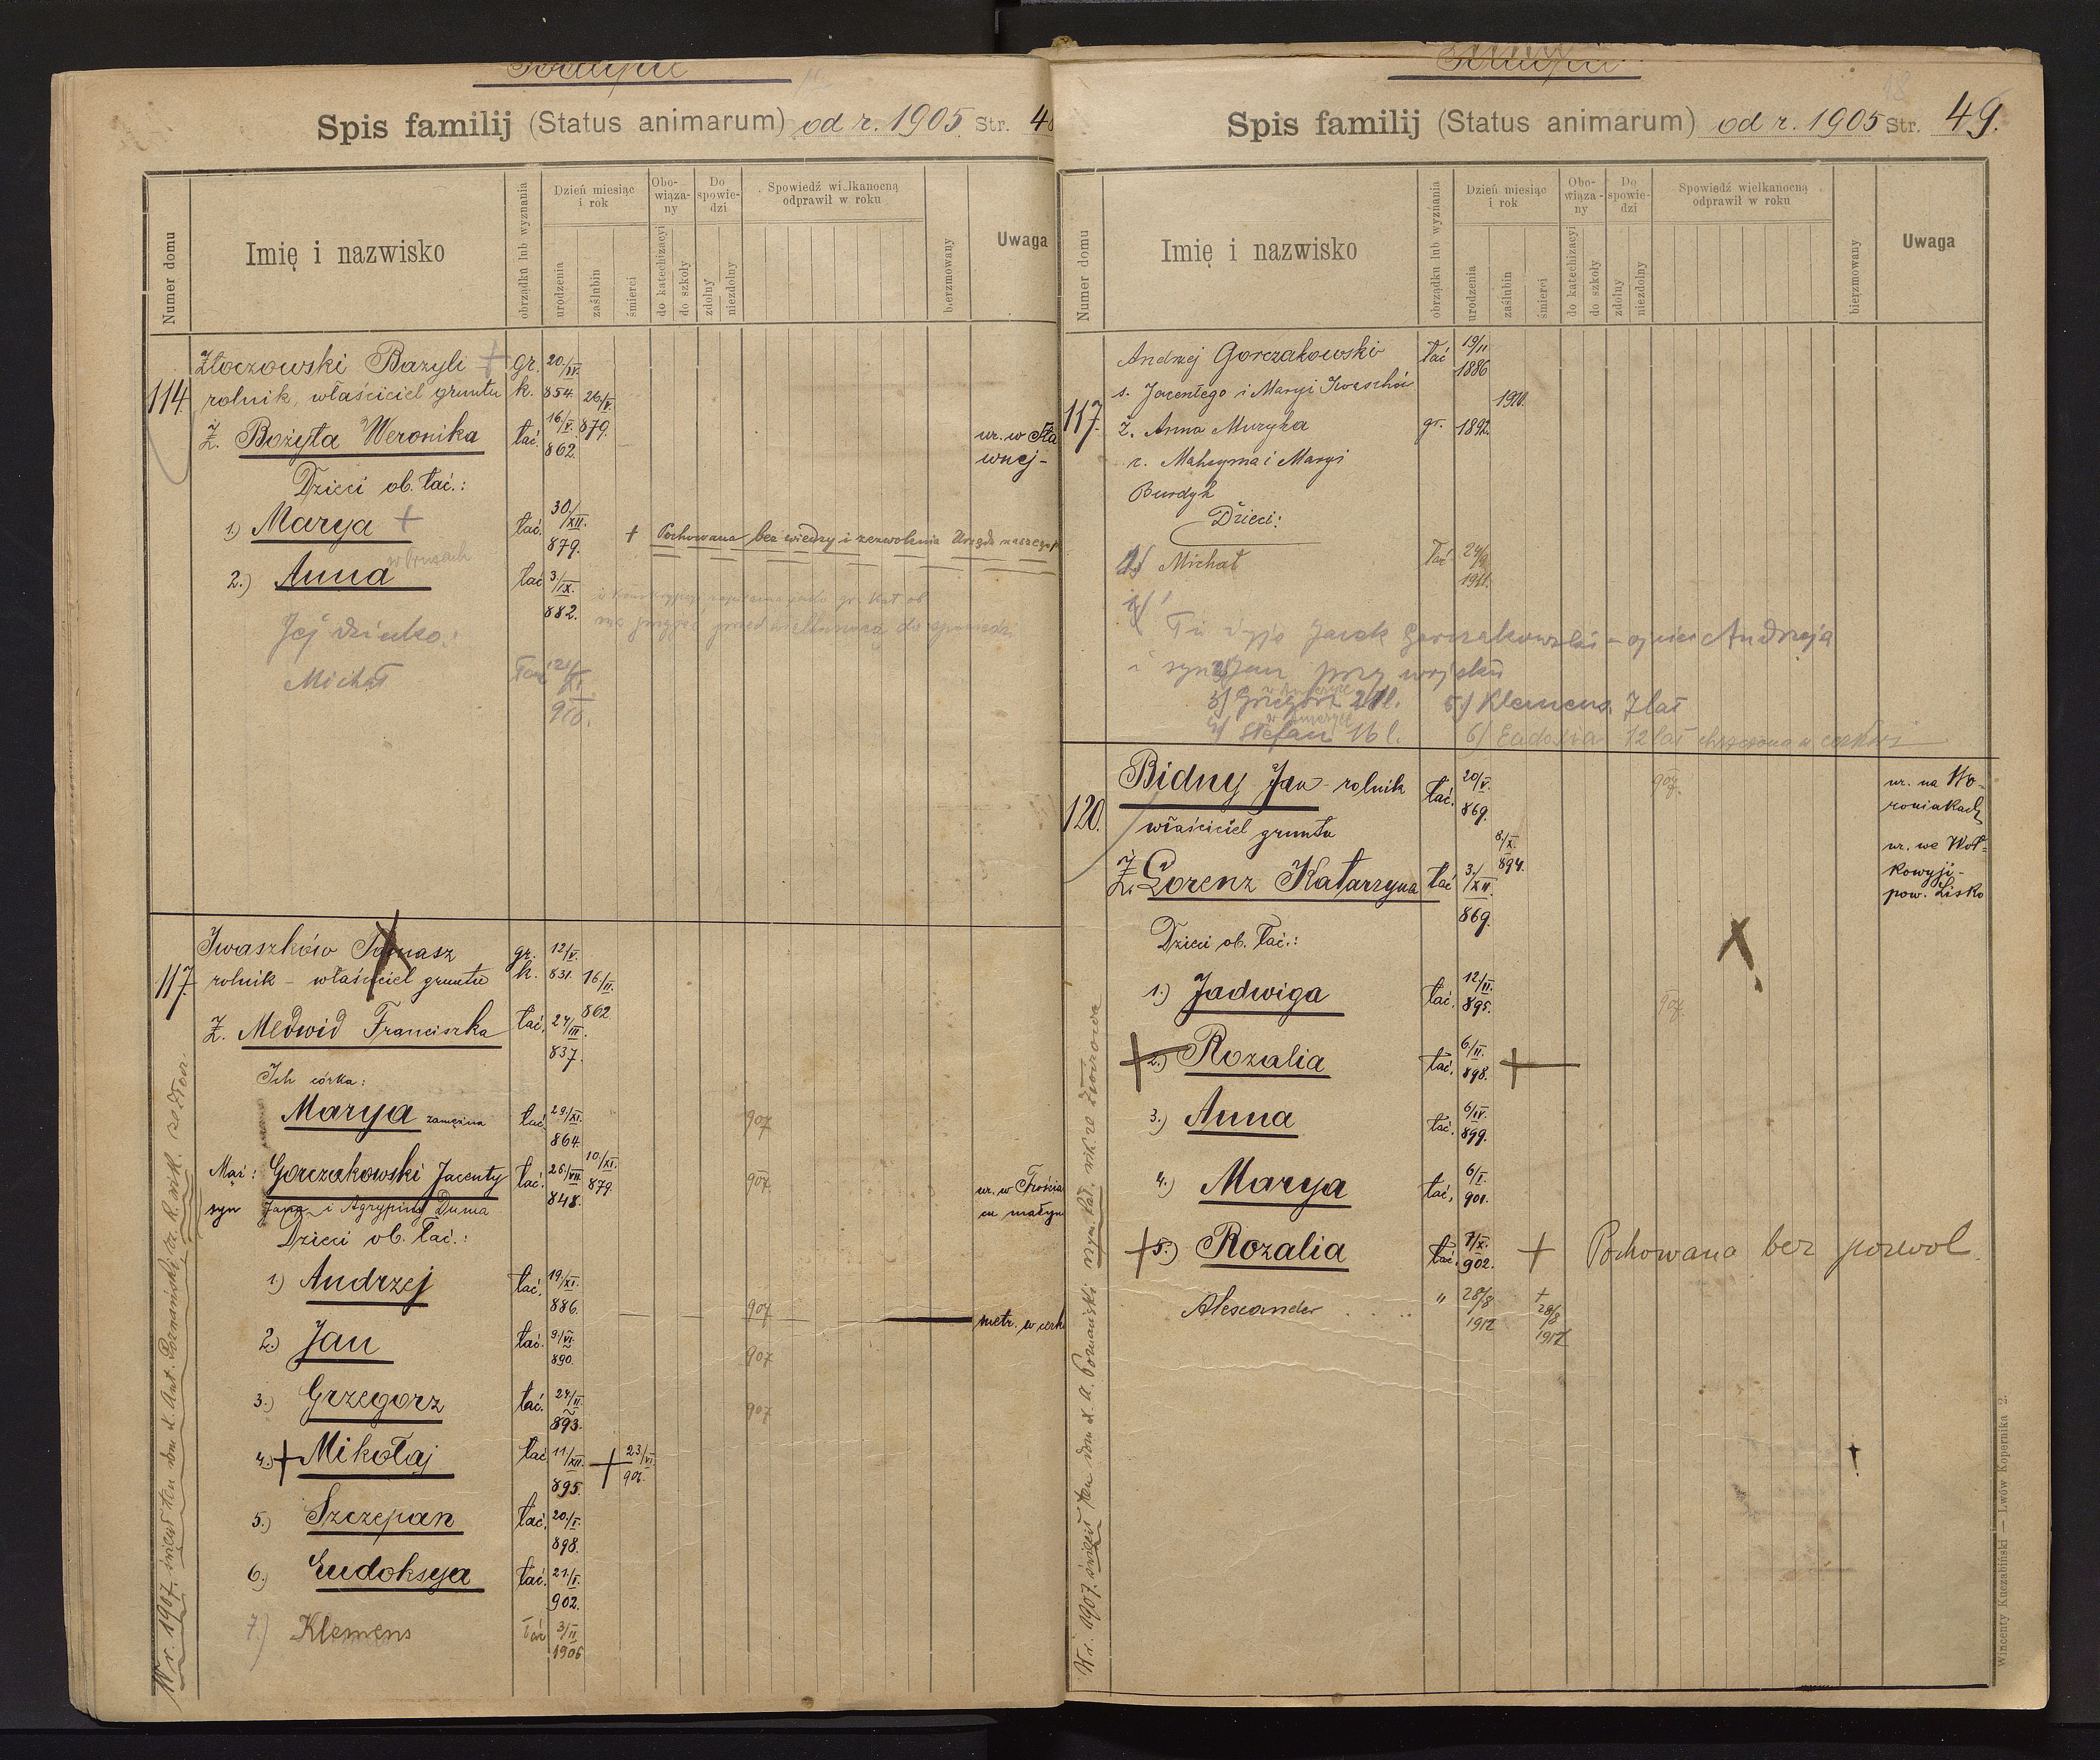 Spis familij (Status animarum) od r. 1905 Str. 48
Numer domu
Imię i nazwisko
obrządku lub wyznania
Dzień miesiąc
i rok
urodzenia
zaślubin
śmierci
Obo-
wiąza-
ny
do katechizacyi
do szkoły
Do
spowie-
dzi
zdolny
niezdolny
Spowiedź wielkanocną
odprawił w roku
bierzmowany
Uwaga
114. Złoczowski Bazyli + gr. 20/IV.
rolnik, właściciel gruntu k. 854. 26/V.
Ż. Bożyta Weronika łać. 16/V. 879. ur. w Sła
862. wnej-
Dzieci ob. łać.:
1) Marya + łać. 30./XII. 879. + Pochowana bez wiedzy i zezwolenia Urzędu naszego
2.) Anna łać 3/IX. 882.
Jej dziecko:
Michał 21/XI. 910.
117. Iwaszków Tomasz gr. 12/V.
rolnik - właściciel gruntu k. 831. 16/II.
Ż. Medwid Franciszka łać. 24/III. 862.
837.
Ich córka:
Marya zamężna łać. 29/XI. 864. 907
Mąż: Gorczakowski Jacenty łać. 26/VII. 848. 10./XI. 879. 907 ur. w Trościa
syn Jana i Agrypiny Duma cu małym
Dzieci ob. łać.:
1) Andrzej łać. 19/XI. 886. 907 metr. w cerk
2.) Jan łać. 9/VI. 890. 907
3.) Grzegorz łać. 24/II. 893. 907
4.) + Mikołaj łać 11/XII. 895. + 23/VI. 902.
5.) Szczepan łać. 20/I. 898.
6.) Eudoksya łać. 21/I. 902.
7.) Klemens łać 3/II 1906
W r. 1907. święcił ten dom X. Ant. Poznański, r. ł. wik. ze Złocz.
Spis familij (Status animarum) od r. 1905 Str. 49.
Numer domu
Imię i nazwisko
obrządku lub wyznania
Dzień miesiąc
i rok
urodzenia
zaślubin
śmierci
Obo-
wiąza-
ny
do katechizacyi
do szkoły
Do
spowie-
dzi
zdolny
niezdolny
Spowiedź wielkanocną
odprawił w roku
bierzmowany
Uwaga
Andrzej Gorczakowski łać 19/11 1886
s. Jacentego i Maryi Iwaszków
117. 1910.
ż. Anna Muzyka gr. 1892.
c. Maksyma i Maryi
Burdyk
Dzieci:
1) Michał łać 24/9 1911.
Tu żyje Jacek Gorczakowski - ojciec Andrzeja
i syn 2) Jan przy wojsku
3) Grzegorz 21 l. w Ameryce 5) Klemens 7 lat
4) Stefan 16 l. w Ameryce 6) Eudoxia 12 lat chrzczona w cerkwi
120. Bidny Jan - rolnik łać. 20/V. 869. 907. ur. na Wo-
właściciel gruntu roniakach
8./X. 894. ur. we Woł-
Ż. Lorenz Katarzyna łać 3./XII. 869. kowyji-
pow. Lisko
Dzieci ob. łać.:
1.) Jadwiga łać. 12/II. 895. 907
+ 2.) Rozalia łać. 6/II. 898. +
3.) Anna łać. 6/IV. 899.
4.) Marya łać. 6/I. 901.
+ 5.) Rozalia łać. 7/X. 902. + Pochowana bez pozwol.
Alexander . . . . . " 28/8 1912 + 28/8 1912
W r. 1907. święcił ten dom X. A. Poznański rzym. kat. wik. ze Złoczowa
Wincenty Kuczabiński — Lwów Kopernika 2.